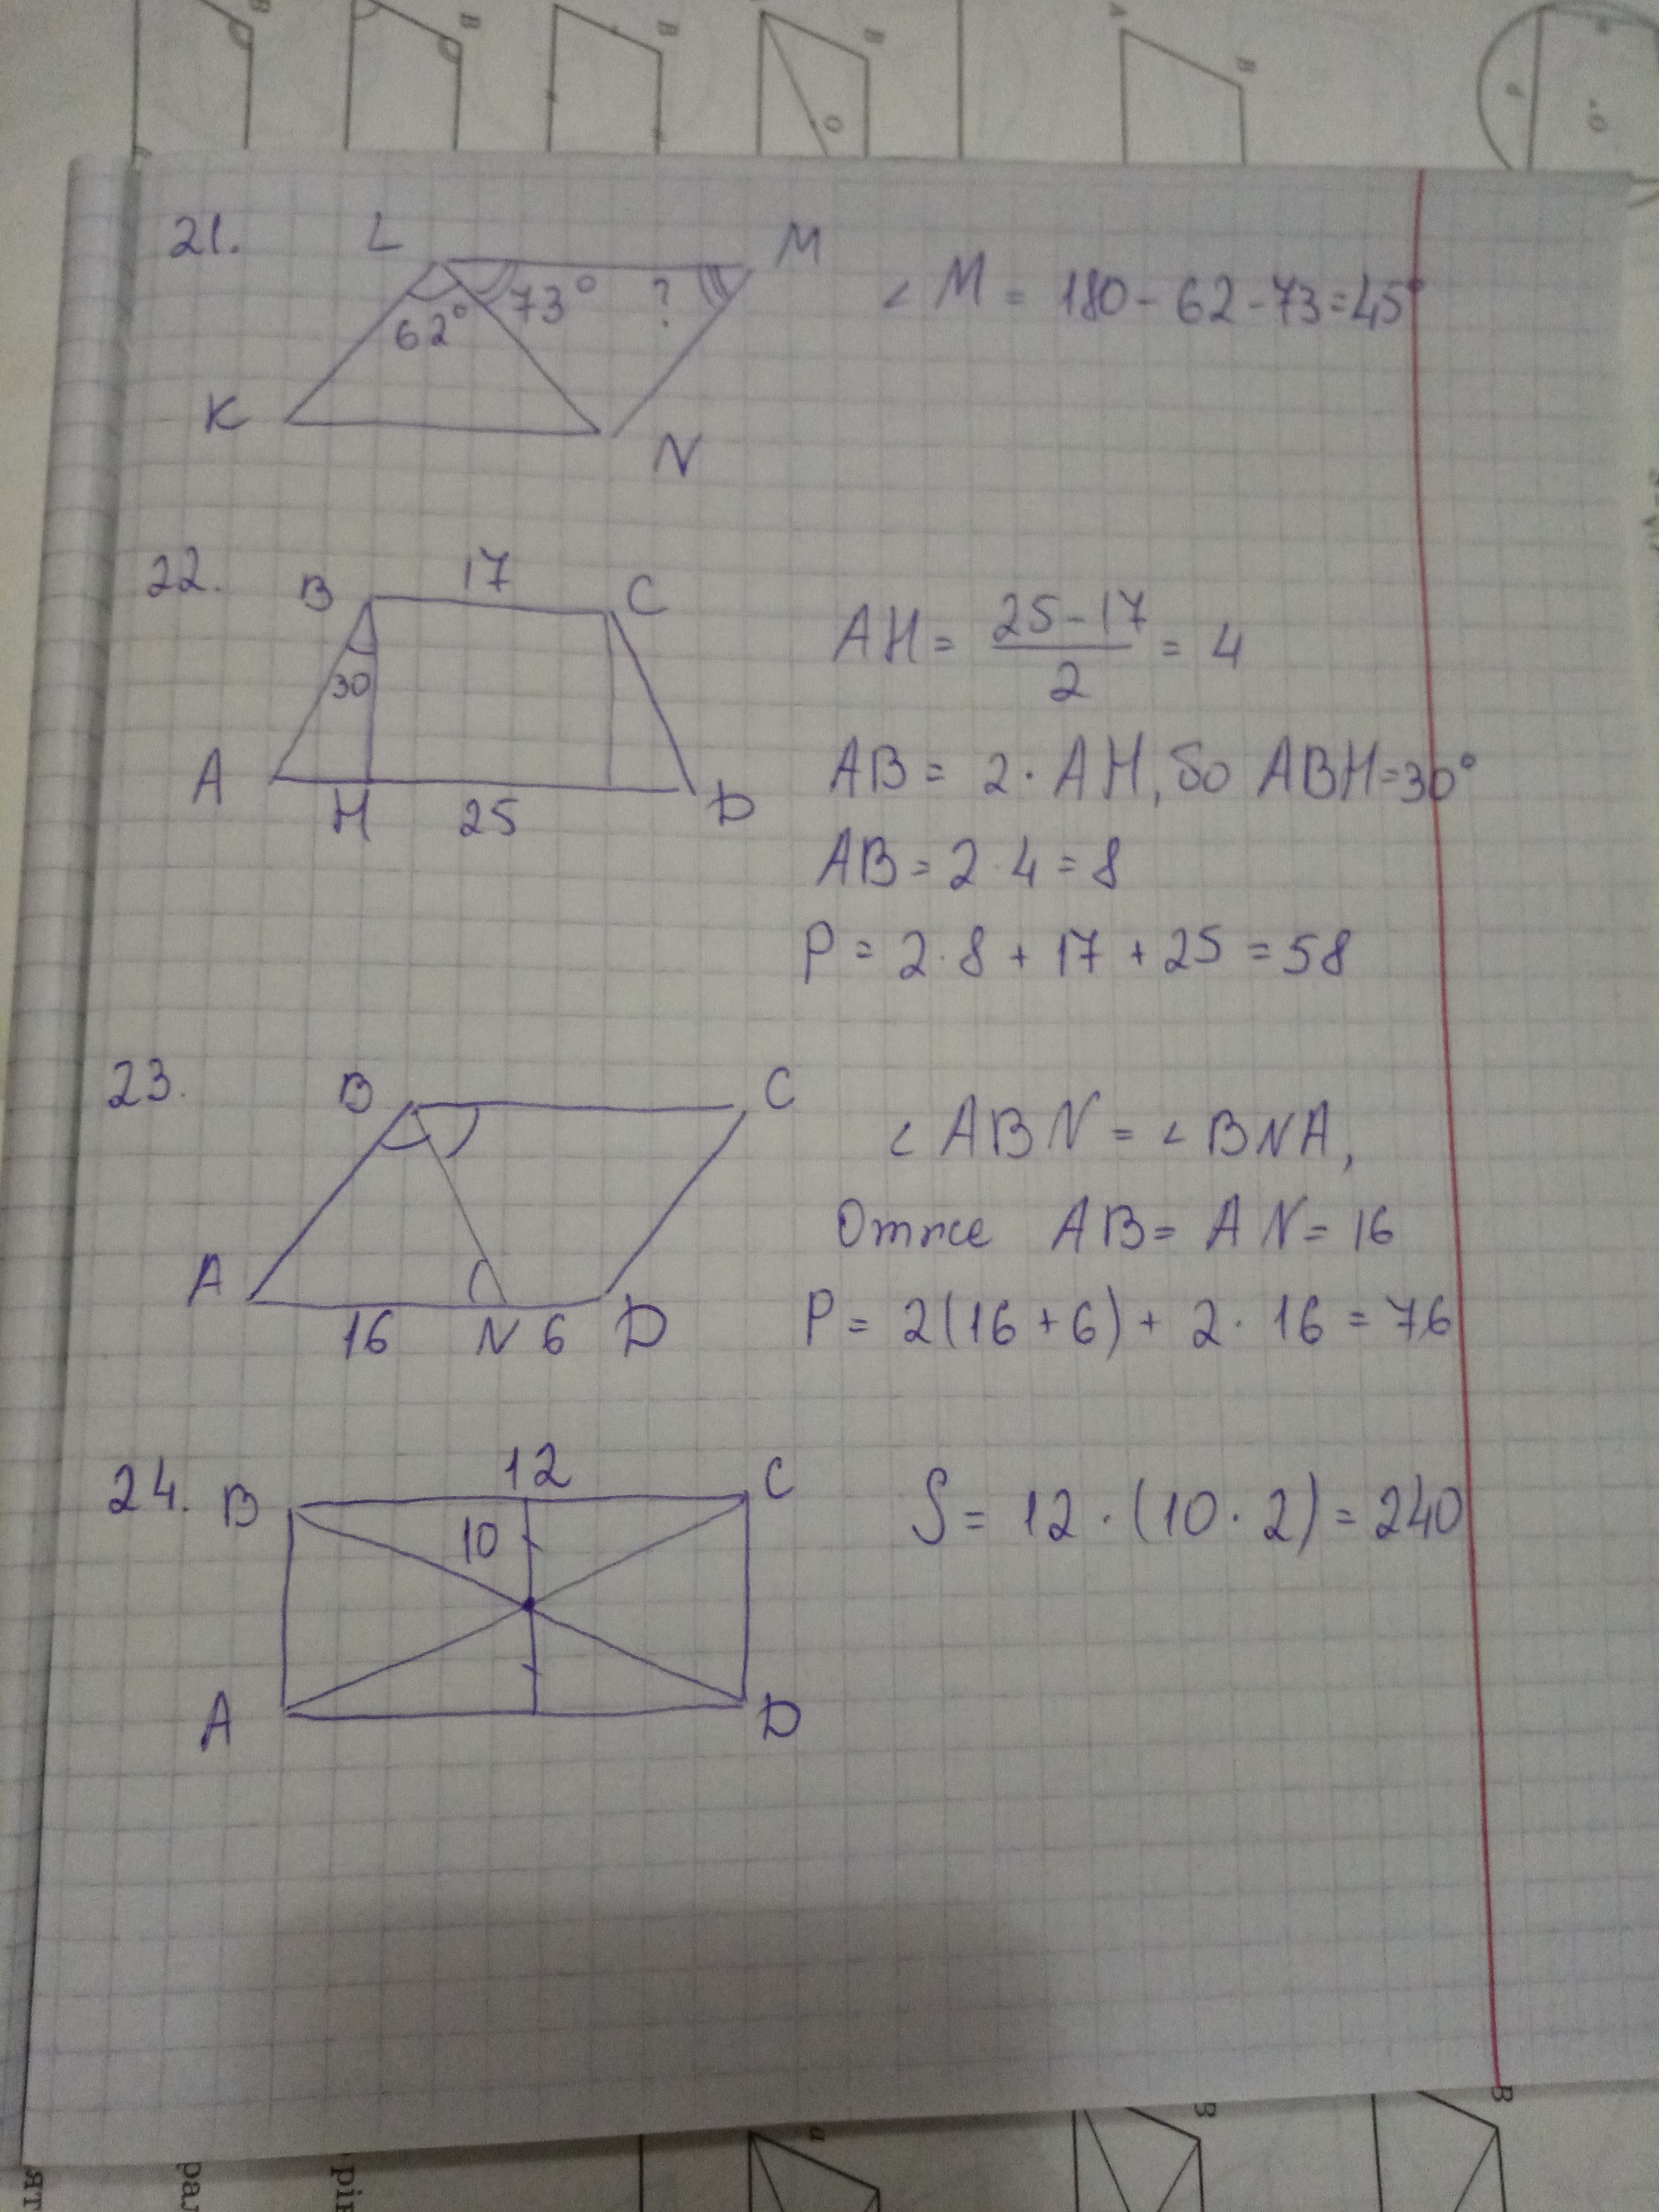 B
B
B
B
O
A
B
a
d
.O
21.
L
M
62°
73°
?
K
N
∠ M = 180 - 62 - 73 = 45°
22.
B
17
C
30
A
H
25
D
AH = (25-17)/2 = 4
AB = 2 · AH, So ABH = 30°
AB = 2 · 4 = 8
P = 2 · 8 + 17 + 25 = 58
23.
B
C
A
16
N
6
D
∠ ABN = ∠ BNA,
Отже AB = AN = 16
P = 2(16 + 6) + 2 · 16 = 76
24.
B
12
C
10
A
D
S = 12 · (10 · 2) = 240
B
B
a
ят
рал
рів